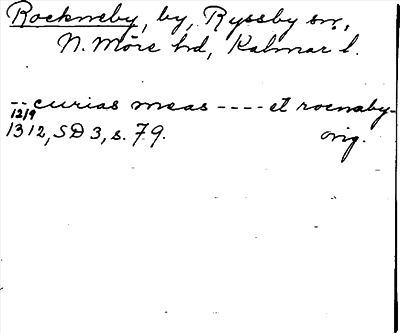 Rockneby, by, Ryssby sn,
N. Möre hd, Kalmar l.
-- curias meas ---- et rocnaby-
12/9
1312, SD 3, s. 79. orig.